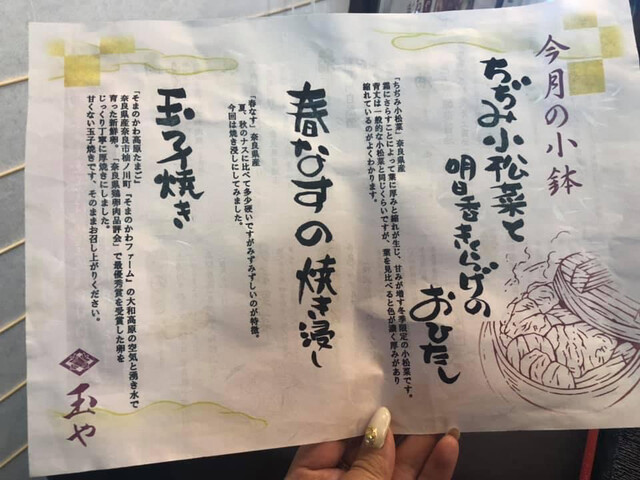 今月の小鉢
ちぢみ小松菜と
明日香きくらげの
おひたし
「ちぢみ小松菜」奈良県産
霜にさらすことによって葉に厚みと縮れが生じ、甘みが増す冬季限定の小松菜です。
背丈は一般的な小松菜と同じくらいですが、葉を見比べると色が濃く厚みがあり
縮れているのがよくわかります。
春なすの焼き浸し
「春なす」奈良県産
夏、秋のナスに比べて多少硬いですがみずみずしいのが特徴。
今回は焼き浸しにしてみました。
玉子焼き
「そまのかわ高原たまご」
奈良県産奈良市杣ノ川町『そまのかわファーム』の大和高原の空気と湧き水で
育った新鮮卵。「奈良県鶏卵肉品評会」で最優秀賞を受賞した卵を
じっくり丁寧に厚焼きにしました。
甘くない玉子焼きです。そのままお召し上がりください。
玉や